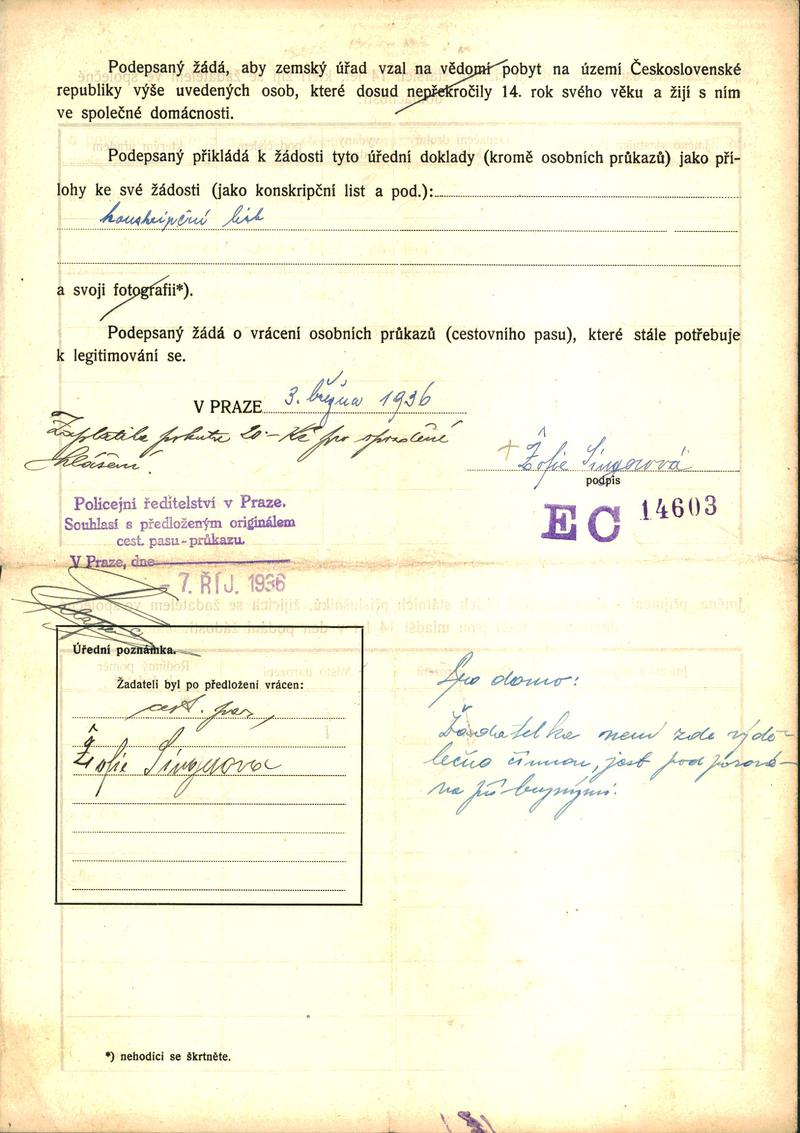 Podepsaný žádá, aby zemský úřad vzal na vědomí pobyt na území Československé
republiky výše uvedených osob, které dosud nepřekročily 14. rok svého věku a žijí s ním
ve společné domácnosti.
Podepsaný přikládá k žádosti tyto úřední doklady (kromě osobních průkazů) jako pří-
lohy ke své žádosti (jako konskripční list a pod.):
konskripční list
a svoji fotografii*).
Podepsaný žádá o vrácení osobních průkazů (cestovního pasu), které stále potřebuje
k legitimování se.
V PRAZE 3. března 1936
Zaplatila pokutu 20.- Kč pro opožděné
hlášení.
Žofie Singerová
podpis
Policejní ředitelství v Praze.
Souhlasí s předloženým originálem
cest. pasu-průkazu.
V Praze, dne
- 7. ŘÍJ. 1936
EC 14603
Úřední poznámka.
Žadateli byl po předložení vrácen:
cest. pas,
Žofie Singerová
Pro domo:
Žadatelka není zde výdě-
lečně činnou, jest podporová-
na příbuznými.
*) nehodící se škrtněte.